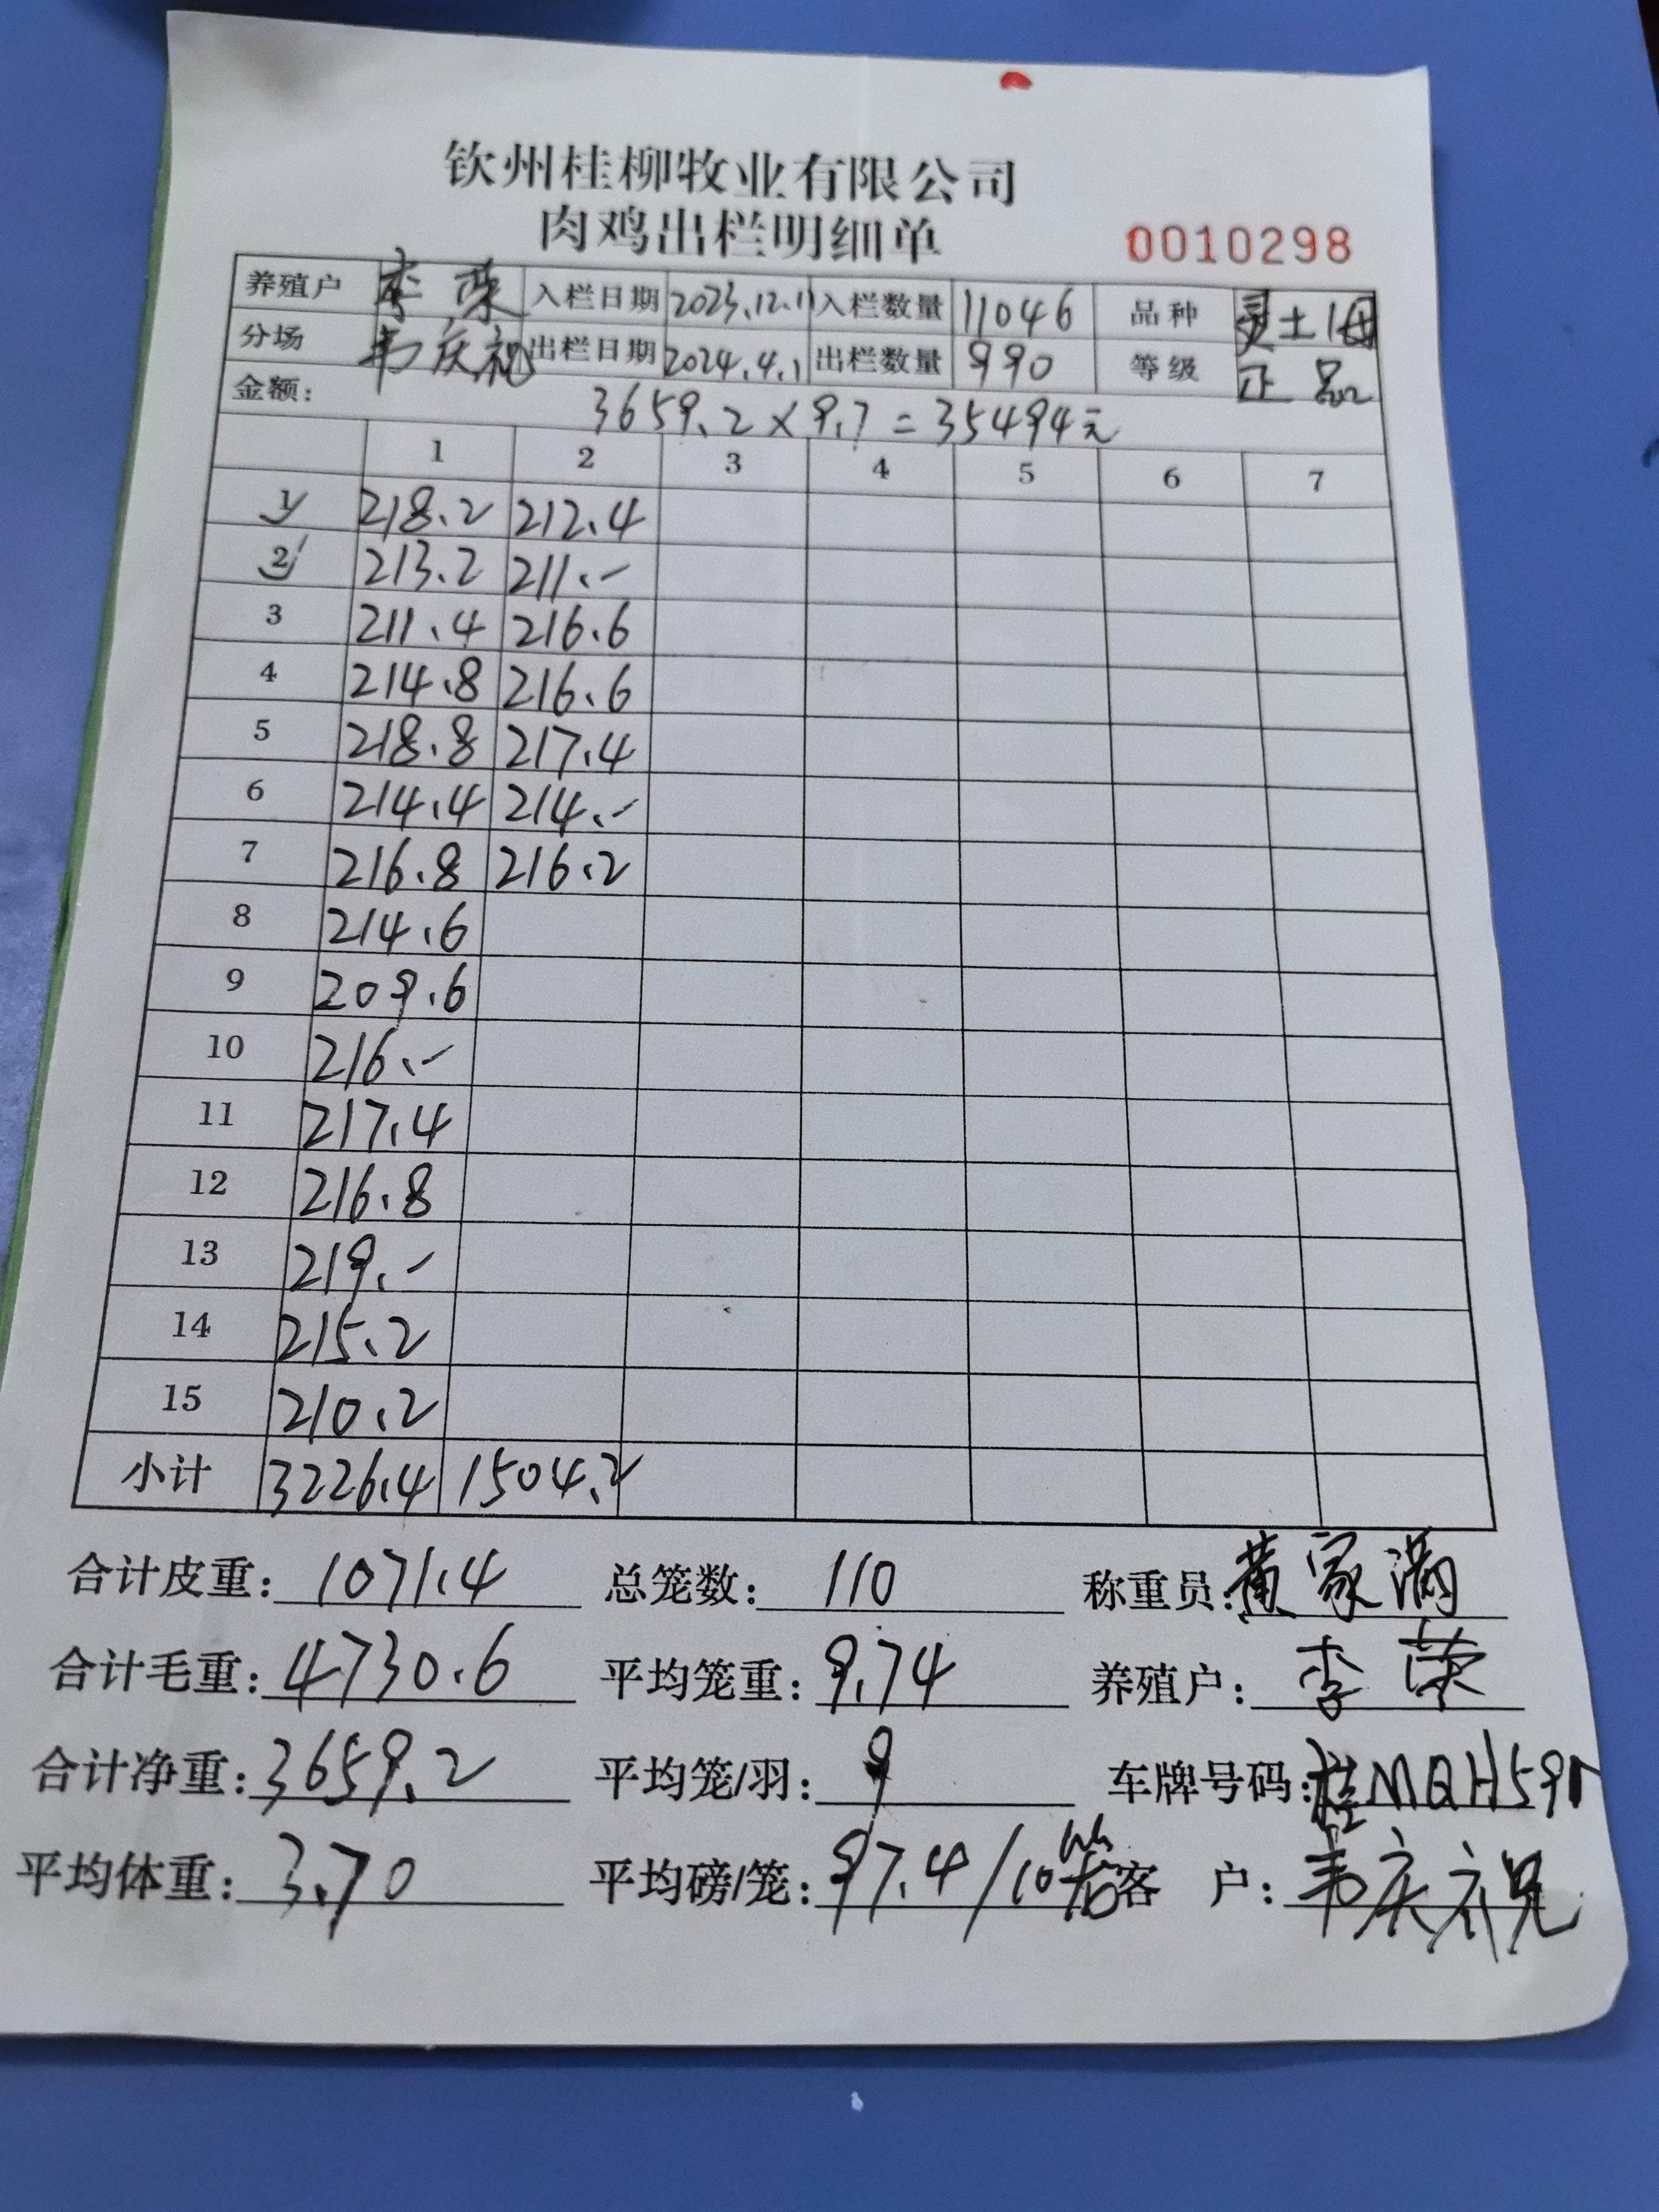 钦州桂柳牧业有限公司
肉鸡出栏明细单
0010298
养殖户 李荣 入栏日期 2023.12.11 入栏数量 11046 品种 灵土1母
分场 韦庆祝 出栏日期 2024.4.1 出栏数量 990 等级 正品
金额: 3659.2×9.7=35494元
1 2 3 4 5 6 7
1 218.2 212.4
2 213.2 211.-
3 211.4 216.6
4 214.8 216.6
5 218.8 217.4
6 214.4 214.-
7 216.8 216.2
8 214.6
9 209.6
10 216.-
11 217.4
12 216.8
13 219.-
14 215.2
15 210.2
小计 3226.4 1504.2
合计皮重: 1071.4 总笼数: 110 称重员: 黄家满
合计毛重: 4730.6 平均笼重: 9.74 养殖户: 李荣
合计净重: 3659.2 平均笼/羽: 9 车牌号码: 桂MQH591
平均体重: 3.70 平均磅/笼: 97.4/10 客 户: 韦庆祝